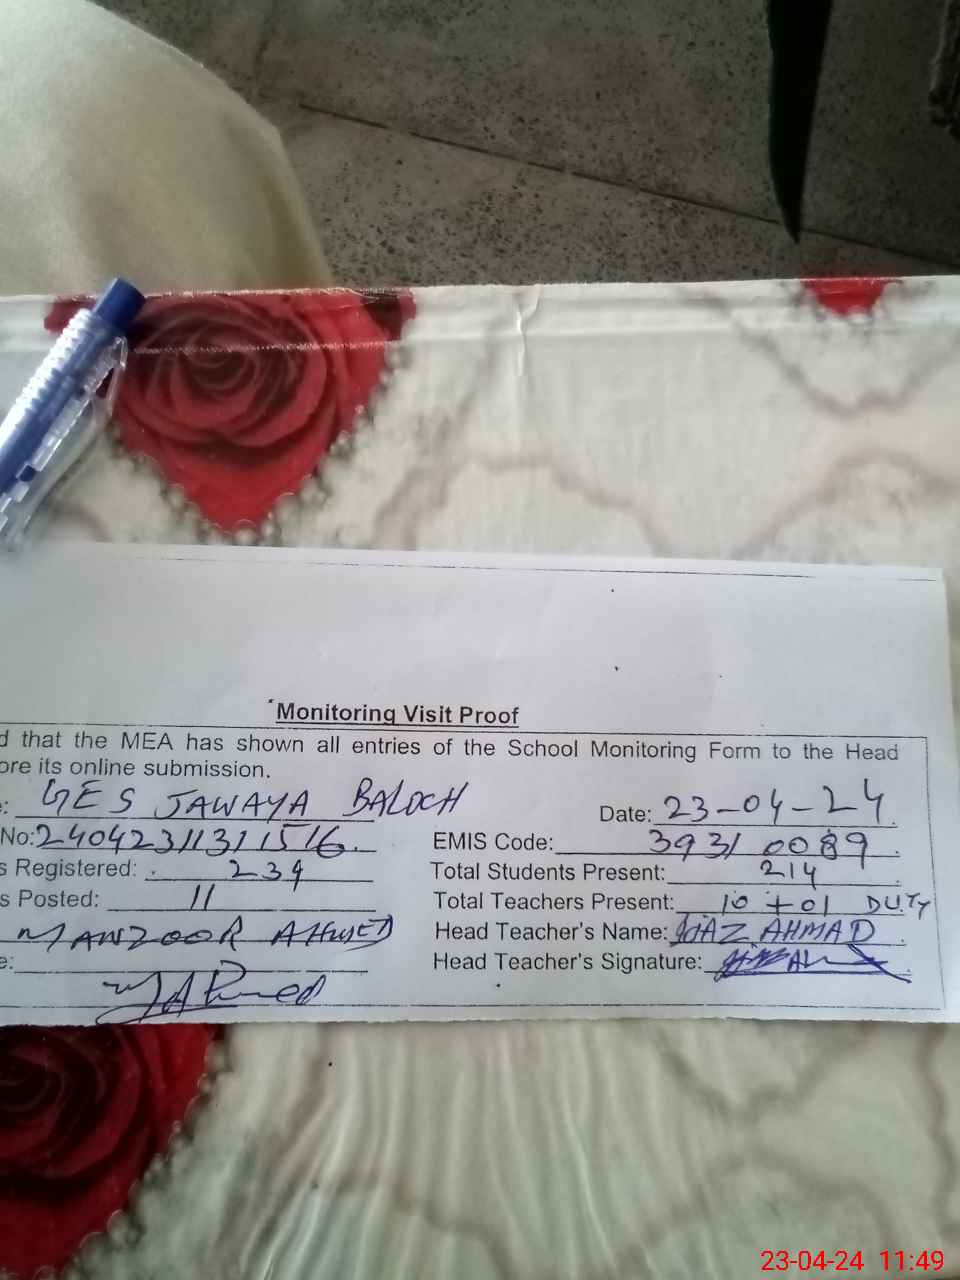 Monitoring Visit Proof
d that the MEA has shown all entries of the School Monitoring Form to the Head
ore its online submission.
e: GES JAWAYA BALOCH Date: 23-04-24
No: EMIS Code: 39310089
s Registered: 234 Total Students Present: 214
s Posted: 11 Total Teachers Present: 10 + 01 DUTY
MANZOOR AHMED Head Teacher's Name: IJAZ AHMAD
e: Head Teacher's Signature:
23-04-24 11:49